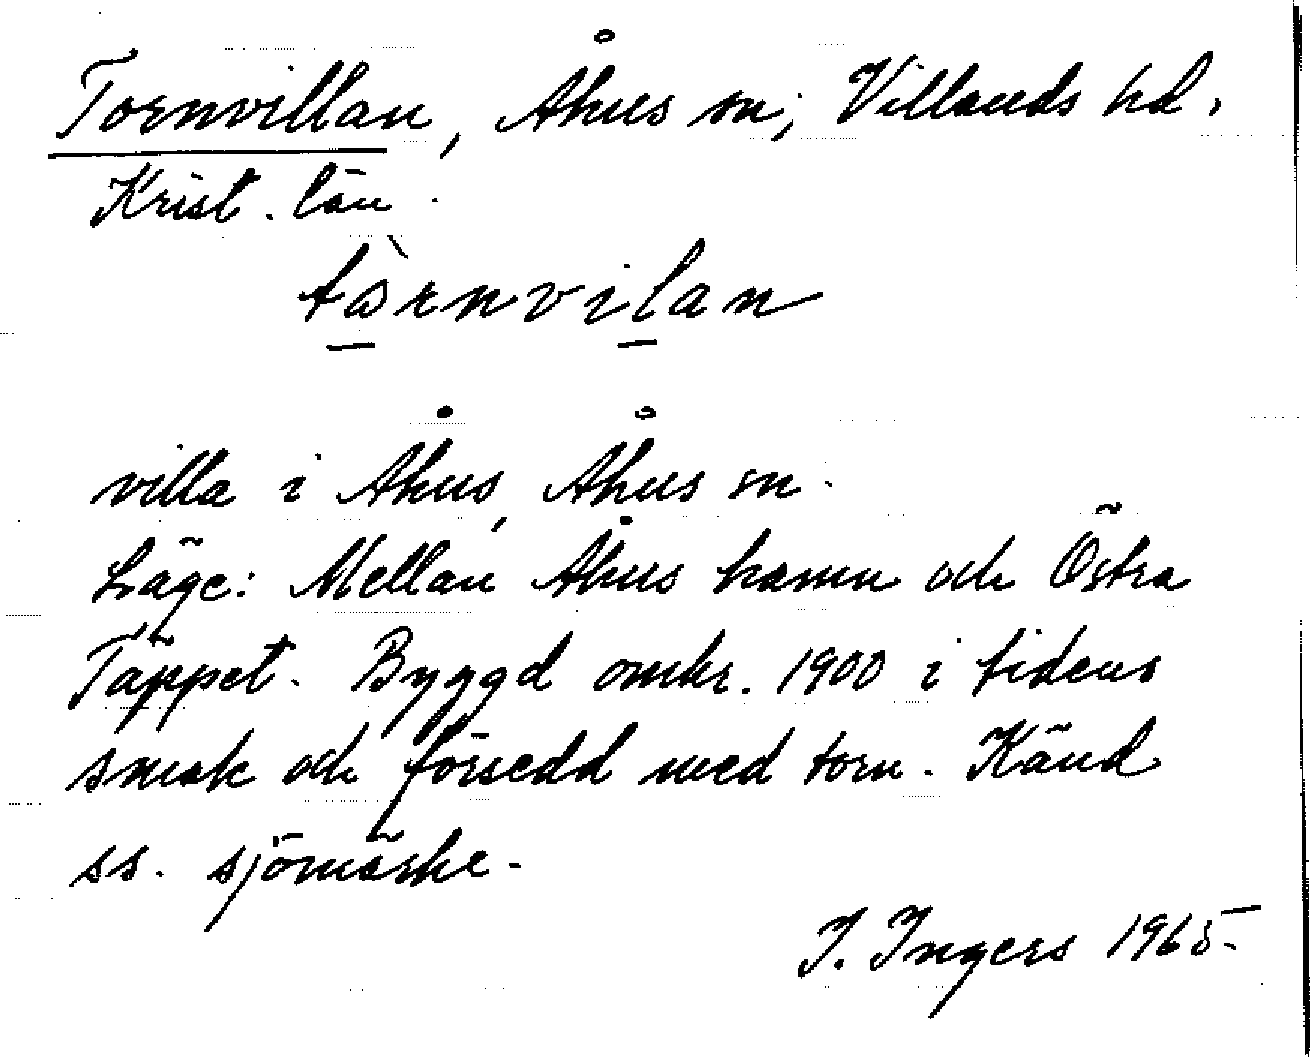 Tornvillan, Åhus sn; Villands hd.
Krist. län.
tòrnvilan
villa i Åhus, Åhus sn.
Läge: Mellan Åhus hamn och Östra
Täppet. Byggd omkr. 1900 i tidens
smak och försedd med torn. Känd
ss. sjömärke.
I. Ingers 1965.